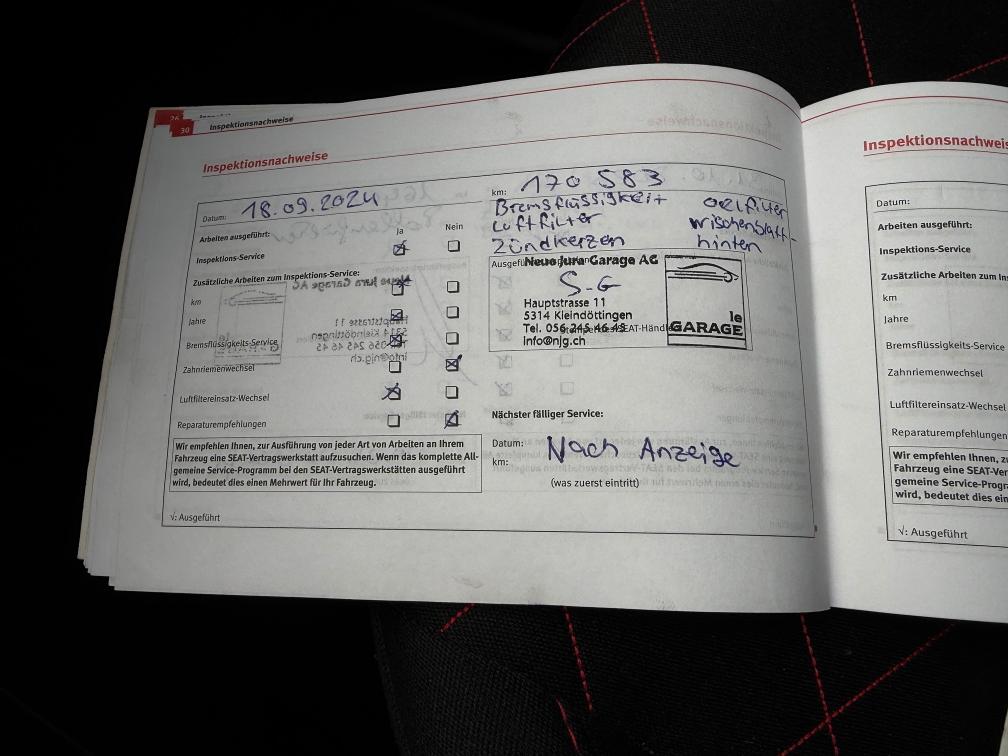 30 Inspektionsnachweise
Inspektionsnachweise
Datum: 18.09.2024
km: 170 583
Bremsflüssigkeit oelfilter
Luftfilter wischenblatt-
Zündkerzen hinten
Arbeiten ausgeführt: Ja Nein
Inspektions-Service
Zusätzliche Arbeiten zum Inspektions-Service:
km
Jahre
Bremsflüssigkeits-Service
Zahnriemenwechsel
Luftfiltereinsatz-Wechsel
Reparaturempfehlungen
Neue Jura Garage AG
S.G
Hauptstrasse 11
5314 Kleindöttingen
Tel. 056 245 46 45
info@njg.ch
le
GARAGE
Nächster fälliger Service:
Datum:
km:
Nach Anzeige
(was zuerst eintritt)
Wir empfehlen Ihnen, zur Ausführung von jeder Art von Arbeiten an Ihrem
Fahrzeug eine SEAT-Vertragswerkstatt aufzusuchen. Wenn das komplette All-
gemeine Service-Programm bei den SEAT-Vertragswerkstätten ausgeführt
wird, bedeutet dies einen Mehrwert für Ihr Fahrzeug.
√: Ausgeführt
Inspektionsnachweis
Datum:
Arbeiten ausgeführt:
Inspektions-Service
Zusätzliche Arbeiten zum Ins
km
Jahre
Bremsflüssigkeits-Service
Zahnriemenwechsel
Luftfiltereinsatz-Wechsel
Reparaturempfehlungen
Wir empfehlen Ihnen, z
Fahrzeug eine SEAT-Ver
gemeine Service-Progra
wird, bedeutet dies ein
√: Ausgeführt